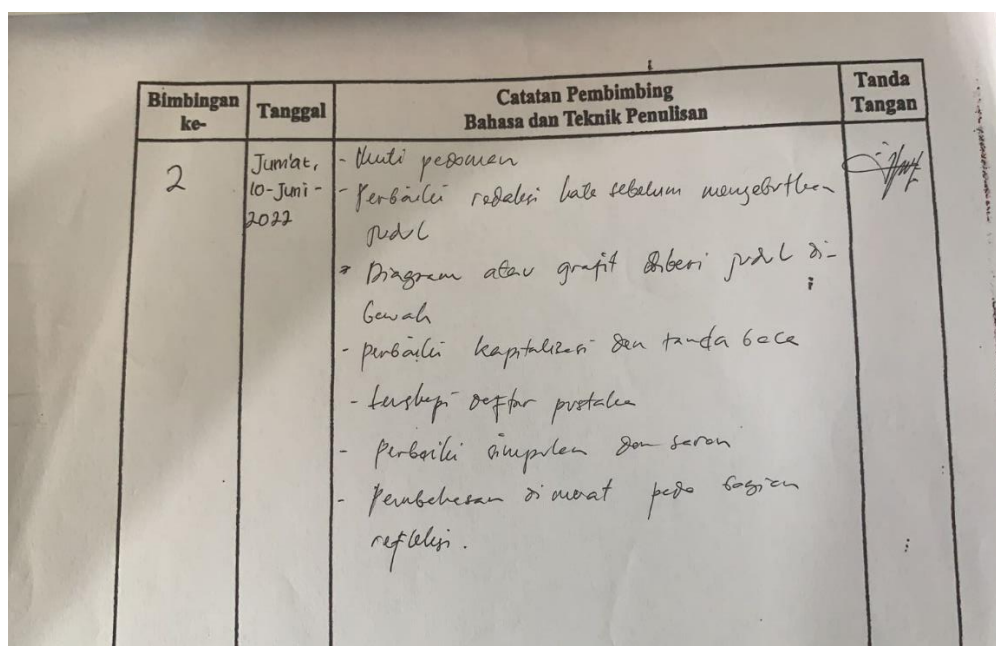 Bimbingan ke-
Tanggal
Catatan Pembimbing
Bahasa dan Teknik Penulisan
Tanda Tangan
2
Jum'at,
10-Juni-
2022
- Ikuti pedoman
- Perbaiki redaksi kata sebelum menyebutkan
judul
* Diagram atau grafik diberi judul di-
bawah
- perbaiki kapitalisasi dan tanda baca
- lengkapi daftar pustaka
- Perbaiki simpulan dan saran
- Pembahasan dimuat pada bagian
refleksi.